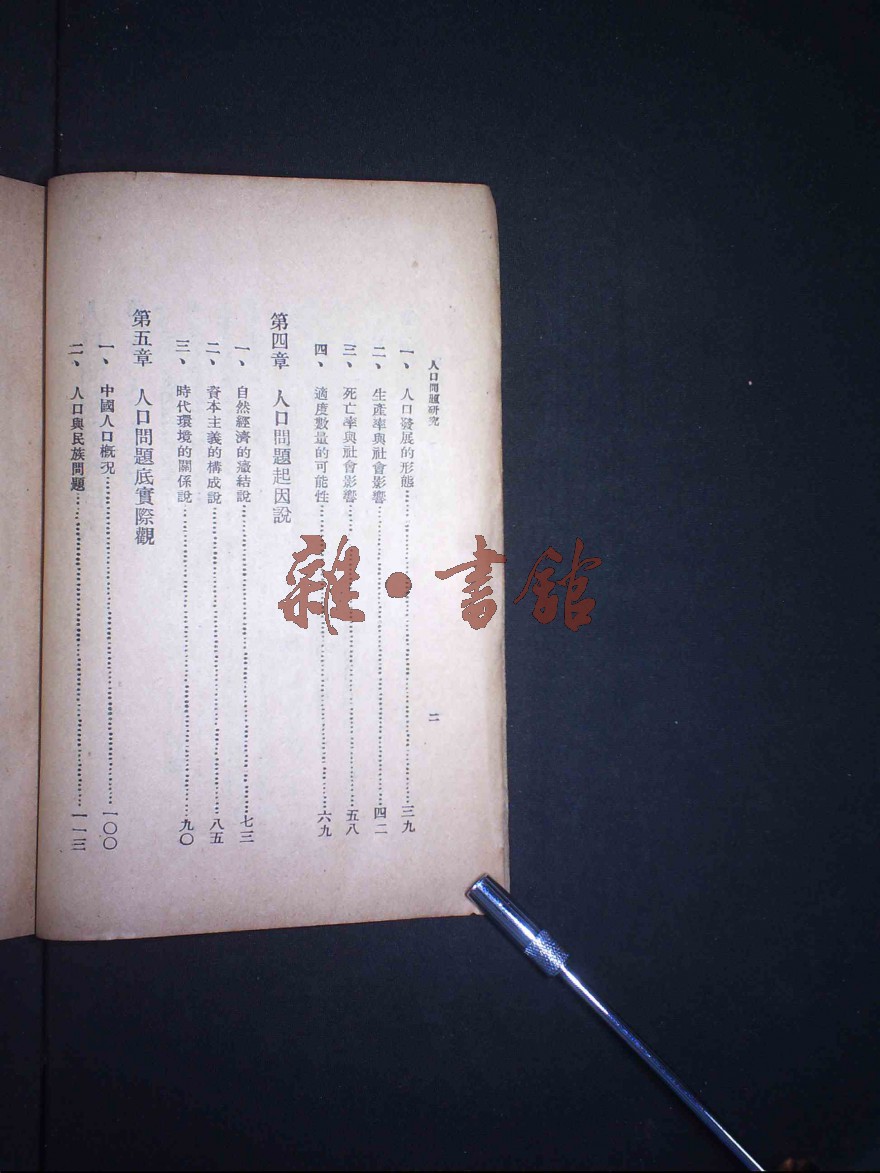 人口問題研究
二
一、人口發展的形態……三九
二、生產率與社會影響……四二
三、死亡率與社會影響……五八
四、適度數量的可能性……六九
第四章 人口問題起因說
一、自然經濟的癥結說……七三
二、資本主義的構成說……八五
三、時代環境的關係說……九〇
第五章 人口問題底實際觀
一、中國人口概况……一〇〇
二、人口與民族問題……一一三
雜·書館